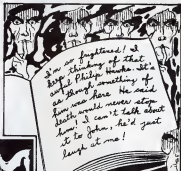 I'm so frightened! I
keep thinking of that
awful Philip Hawks. It's
as though something of
him was here. He said
death would never stop
him! I can't talk about
it to John; he'd just
laugh at me!